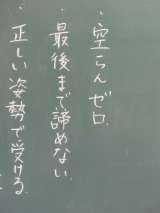 ・空らんゼロ.
・最後まで諦めない.
・正しい姿勢で受ける.